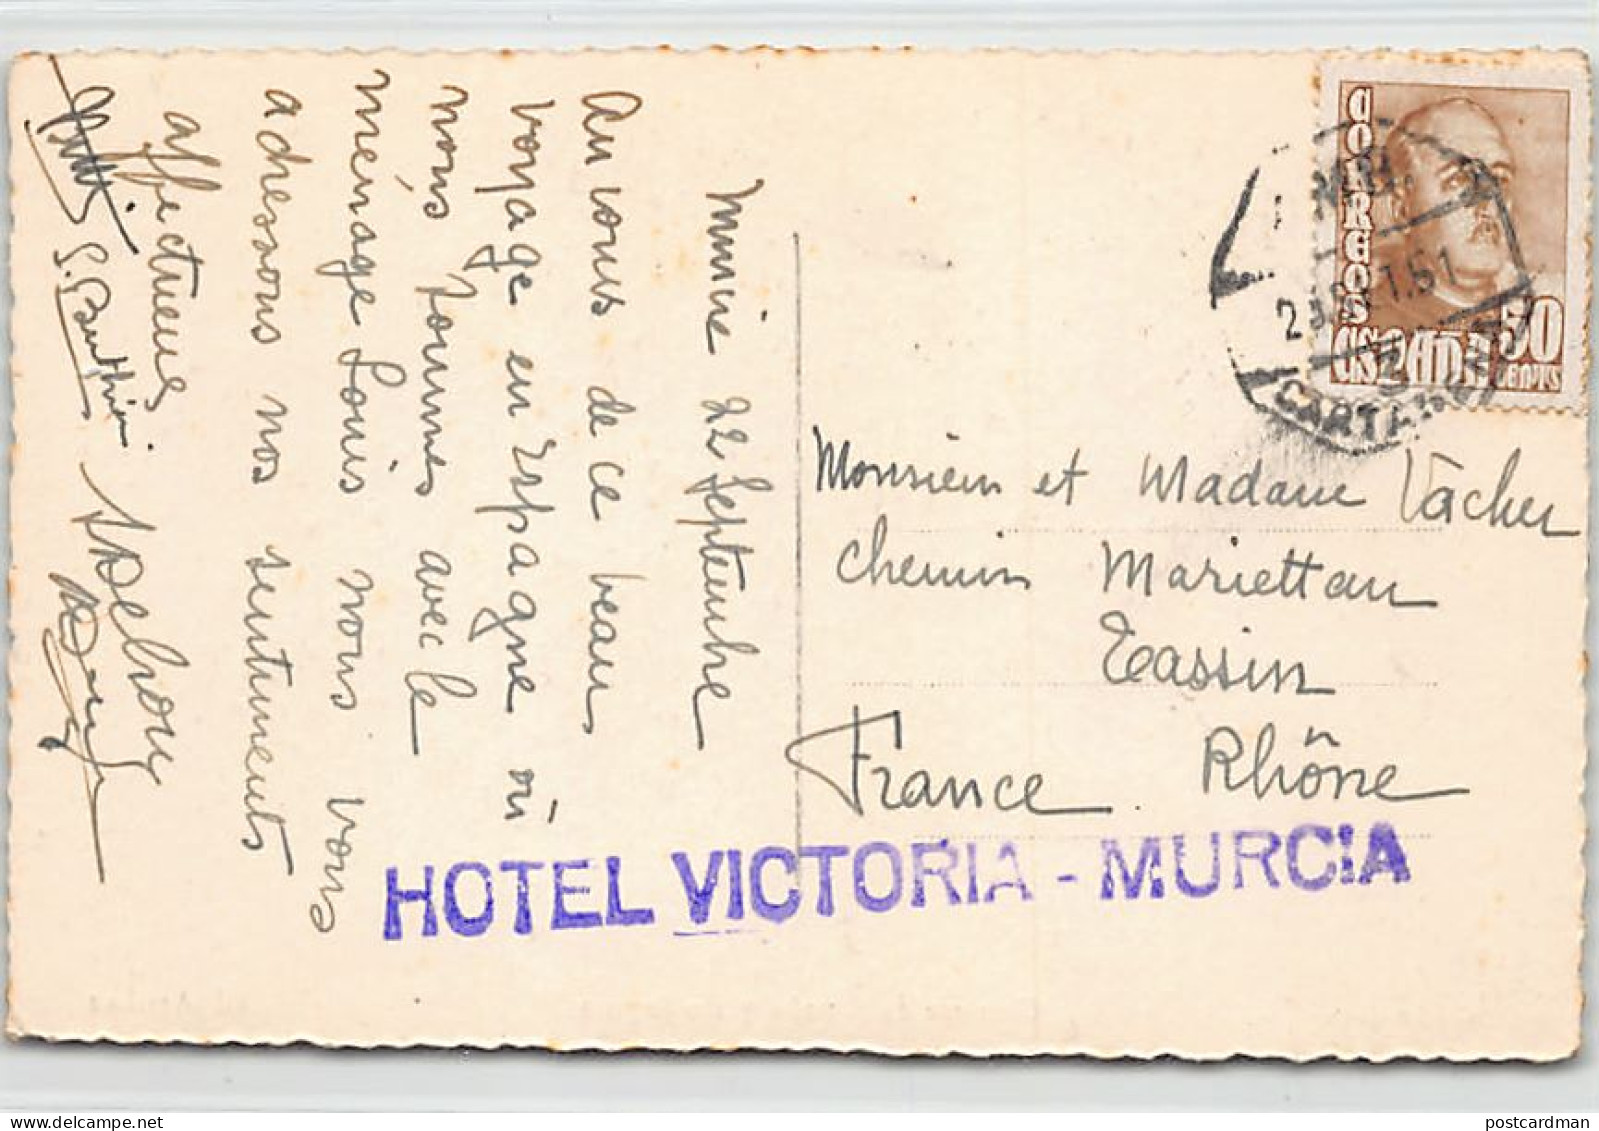 Murcie 22 Septembre
Au cours de ce beau
voyage en Espagne où
nous sommes avec le
ménage Louis nous vous
adressons nos sentiments
affectueux
S. Berthier
CORREOS
ESPAÑA
50
CENTS
CARTAGENA
Monsieur et Madame Vacher
Chemin Mariettan
Tassin
Rhône
France
HOTEL VICTORIA - MURCIA
postcardman